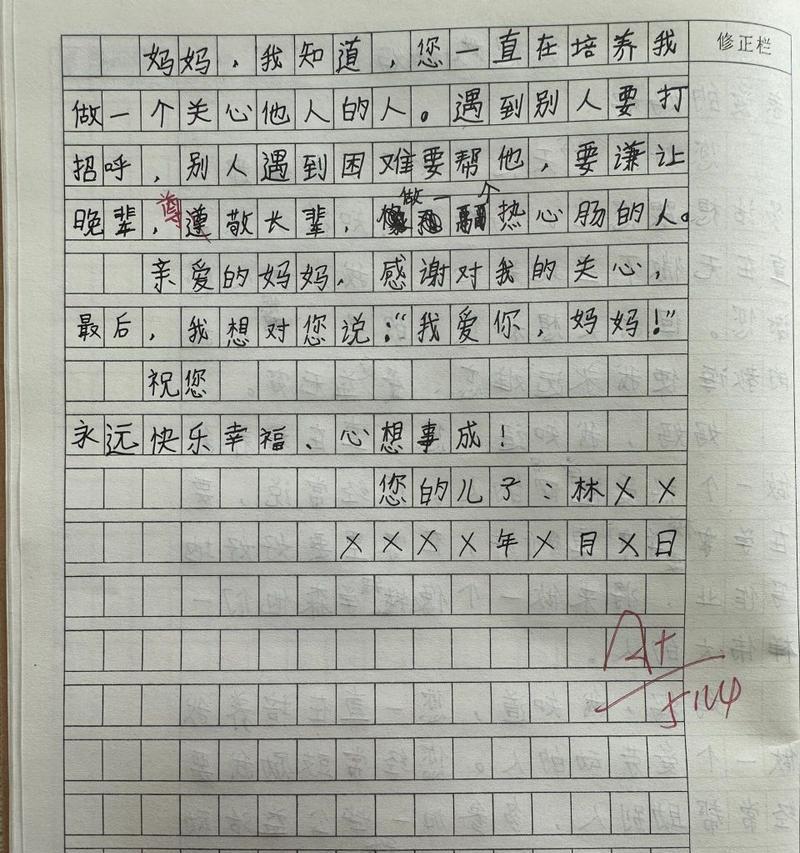 修正栏
妈妈，我知道，您一直在培养我
做一个关心他人的人。遇到别人要打
招呼，别人遇到困难要帮他，要谦让
做一个
晚辈，尊遵敬长辈，热心肠的人。
亲爱的妈妈，感谢对我的关心，
最后，我想对您说：“我爱你，妈妈！”
祝您
永远快乐幸福、心想事成！
您的儿子：林××
××××年×月×日
A+